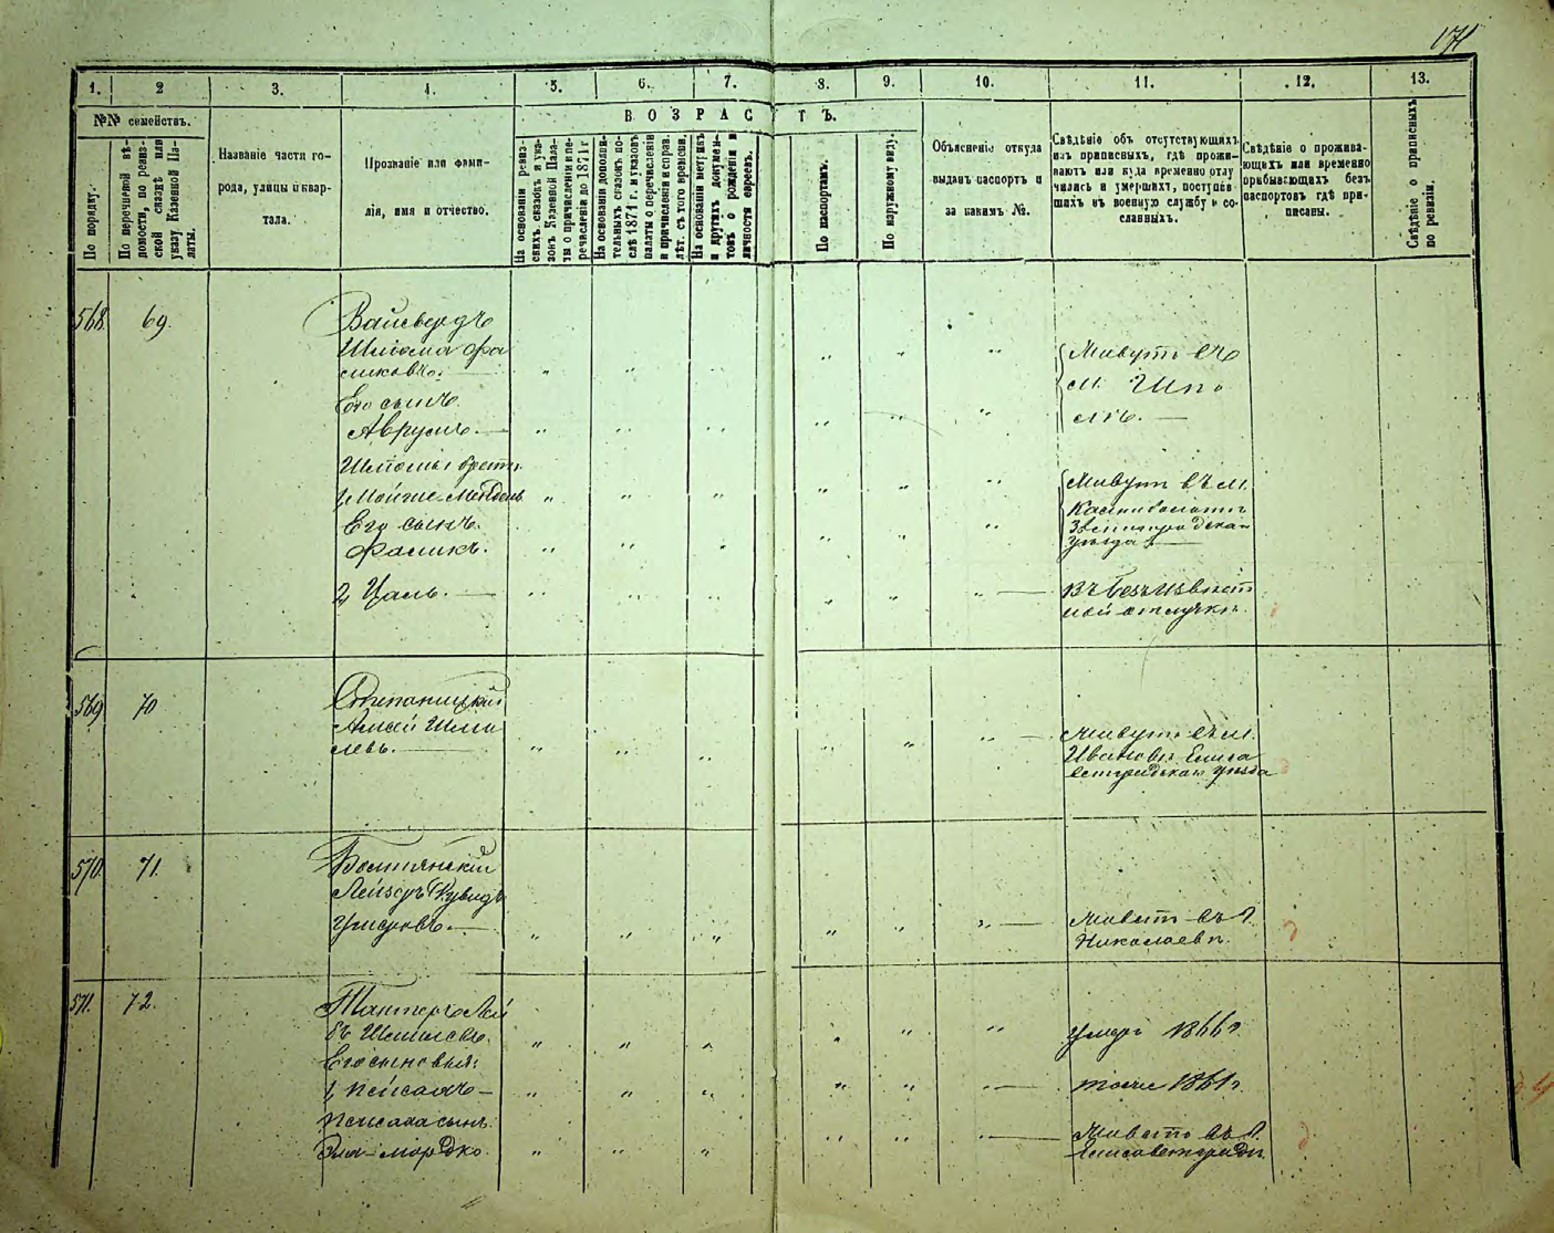 171
1. 2 3. 4. 5. 6. 7. 8. 9. 10. 11. 12. 13.
№№ семействъ.
По порядку.
По перечневой вѣ-
домости, по ревиз-
ской сказкѣ или
указу Казенной Па-
латы.
Названіе части го-
рода, улицы и квар-
тала.
Прозваніе или фами-
лія, имя и отчество.
ВОЗРАСТЪ.
На основаніи ревиз-
скихъ сказокъ и ука-
зовъ Казенной Пала-
ты о причисленіи и пе-
речисленіи до 1871 г
На основаніи дополни-
тельныхъ сказокъ по-
слѣ 1871 г. и указовъ
палаты о перечисленіи
и причисленіи и справ.
лѣт. съ того времени.
На основаніи метрикъ
и другихъ докумен-
товъ о рожденіи и
личности евреевъ.
По паспортамъ.
По наружному виду.
Объясненіе откуда
выданъ паспортъ и
за какимъ №.
Свѣдѣніе объ отсутствующихъ
изъ приписныхъ, гдѣ прожи-
ваютъ или куда временно отлу
чились и умершихъ, поступив-
шихъ въ военную службу и со-
сланныхъ.
Свѣдѣніе о прожива-
ющихъ или временно
прибывающихъ безъ
паспортовъ гдѣ при-
писаны.
Свѣдѣніе о приписныхъ
по ревизіи.
568. 69.
Вайсбердъ
Шліома Фа
ликовъ.
Живутъ въ
м. Шпо
лѣ.
Его сынъ
Аврумъ.
Шліомы братъ
1, Мойше-Мендель
Его сынъ.
Фаликъ.
Живутъ въ м.
Звенигородскаго
уѣзда
2, Цаль.
Въ безъизвѣст
ной отлучкѣ.
569 70
Степаницкій
Шми
левъ.
Живутъ въ м.
Ивановкѣ Елиса
ветградскаго уѣзда
570. 71.
Лейзеръ
Живетъ въ г.
Николаевѣ.
571. 72.
Лей
бъ Шмилевъ.
Умеръ 1866 г.
Его сыновья:
1, Пейсахъ
тоже 1861 г.
Пейсаха сынъ.
Эля-Мордко.
Живетъ въ г.
Елисаветградѣ